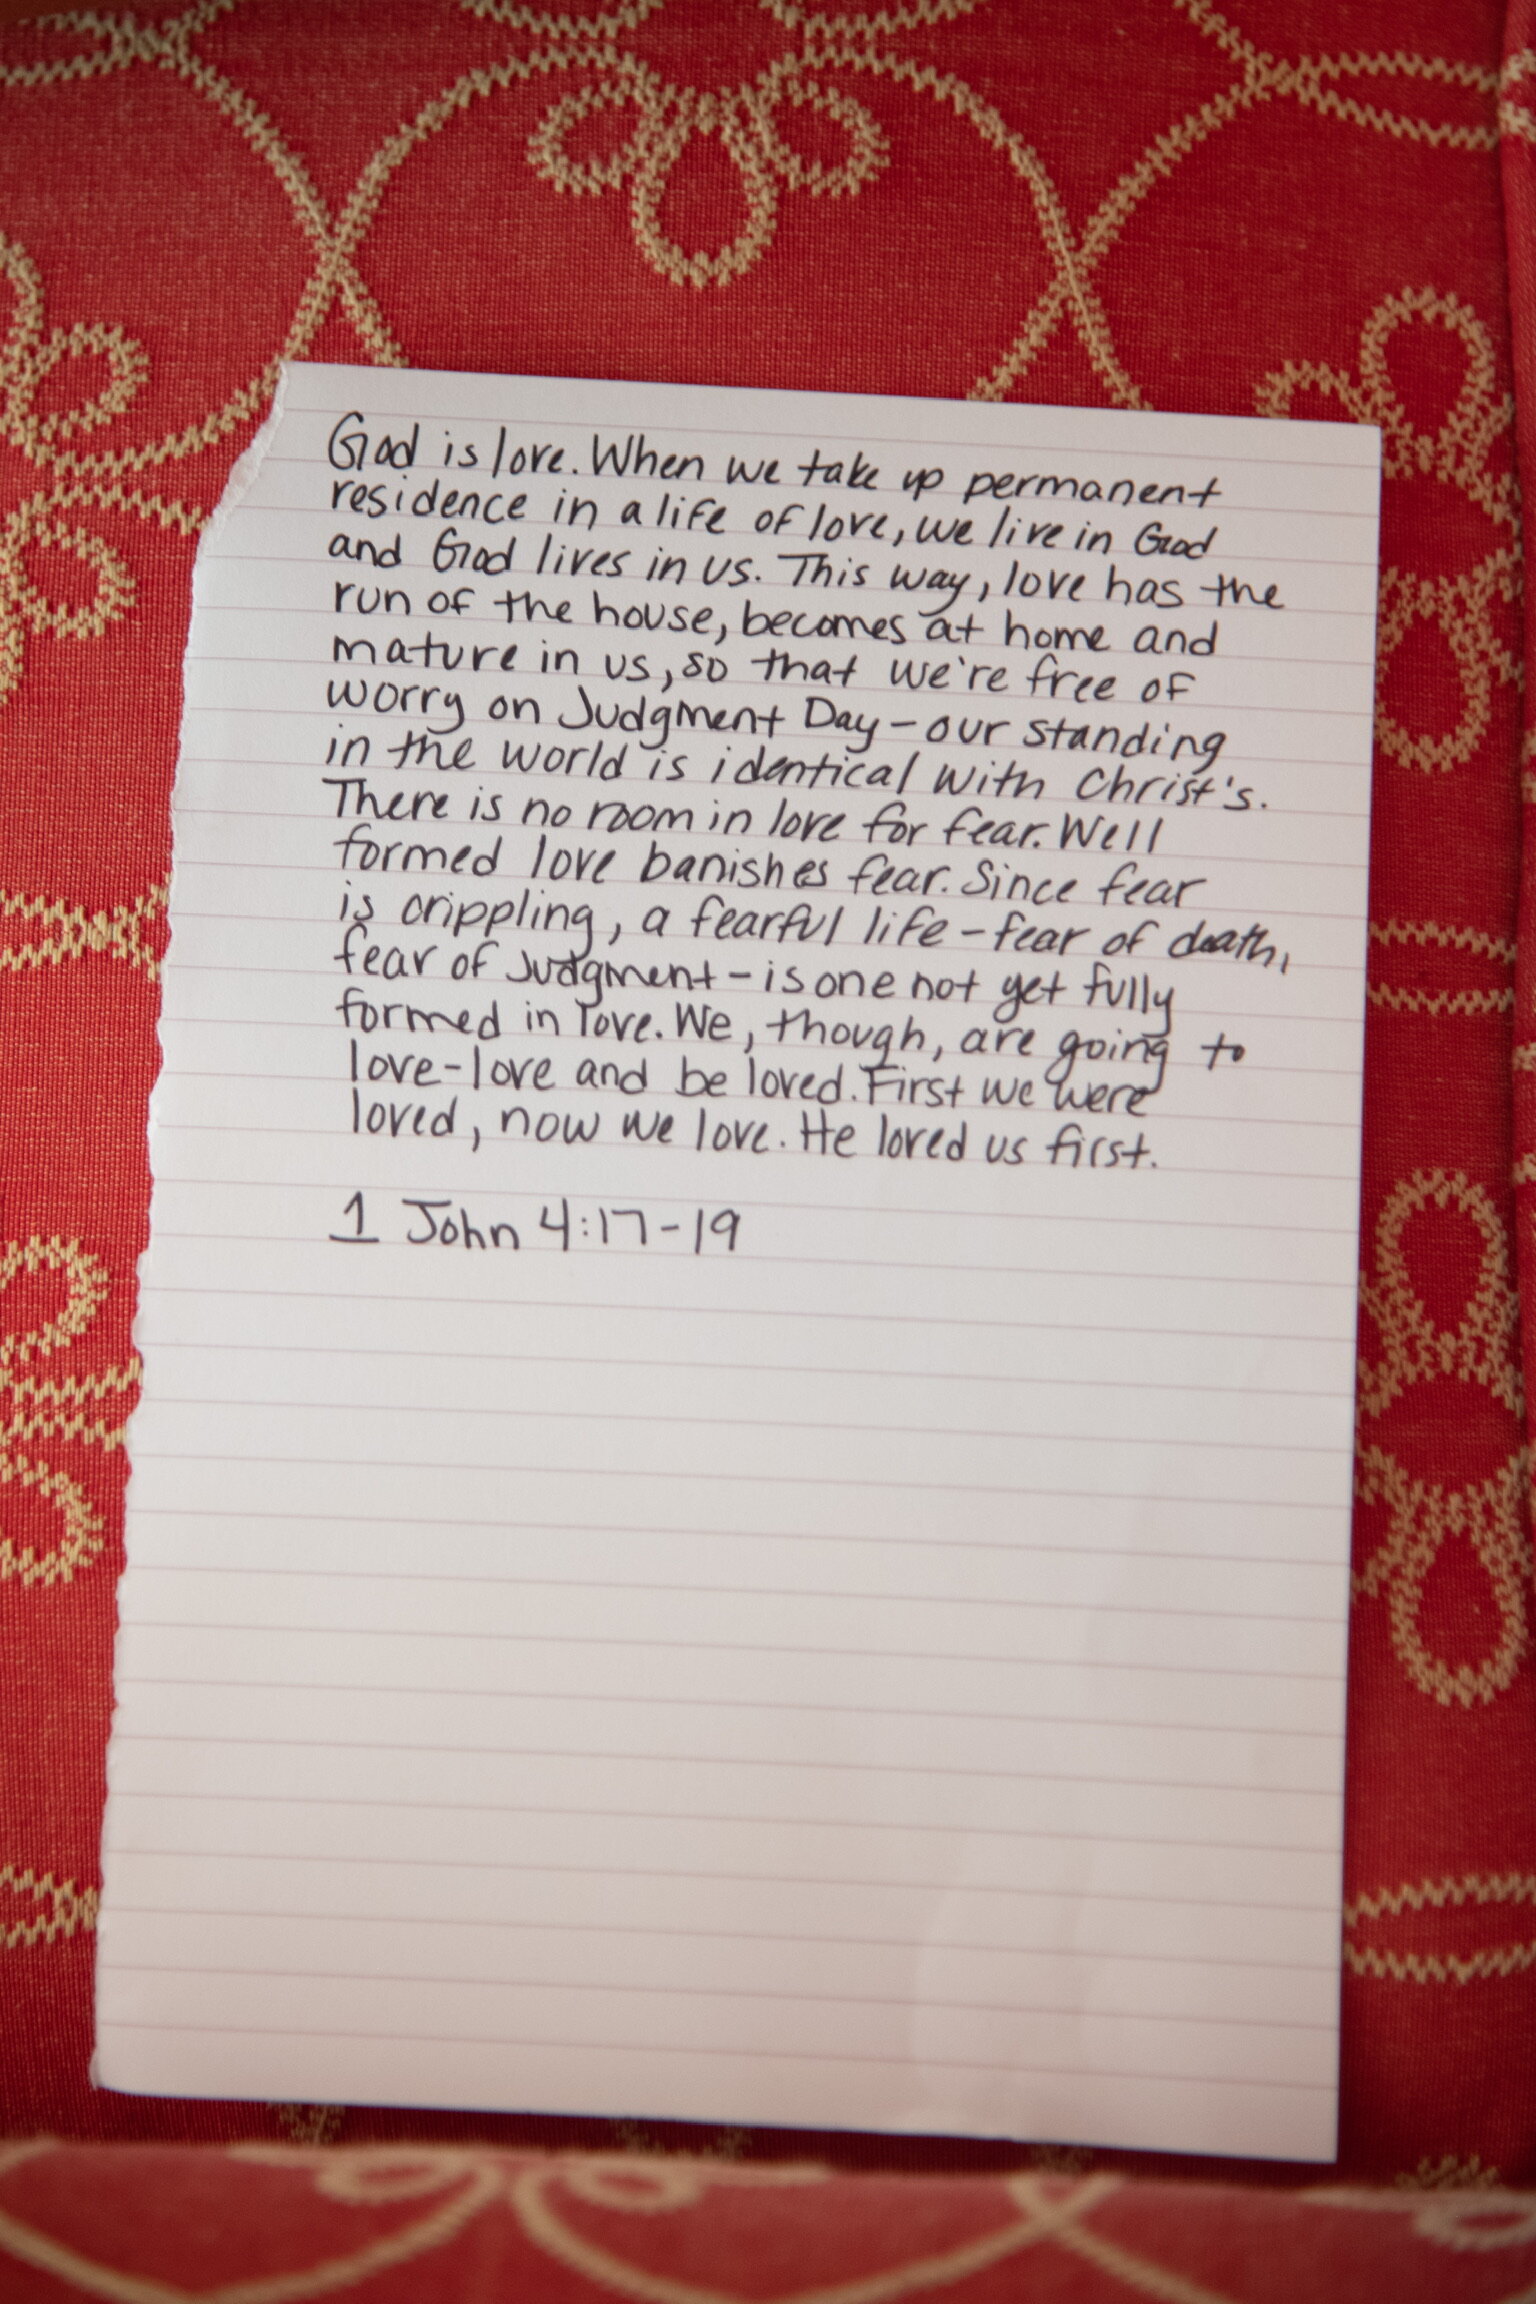 God is love. When we take up permanent
residence in a life of love, we live in God
and God lives in us. This way, love has the
run of the house, becomes at home and
mature in us, so that we're free of
worry on Judgment Day - our standing
in the world is identical with Christ's.
There is no room in love for fear. Well
formed love banishes fear. Since fear
is crippling, a fearful life - fear of death,
fear of judgment - is one not yet fully
formed in love. We, though, are going to
love - love and be loved. First we were
loved, now we love. He loved us first.
1 John 4:17-19